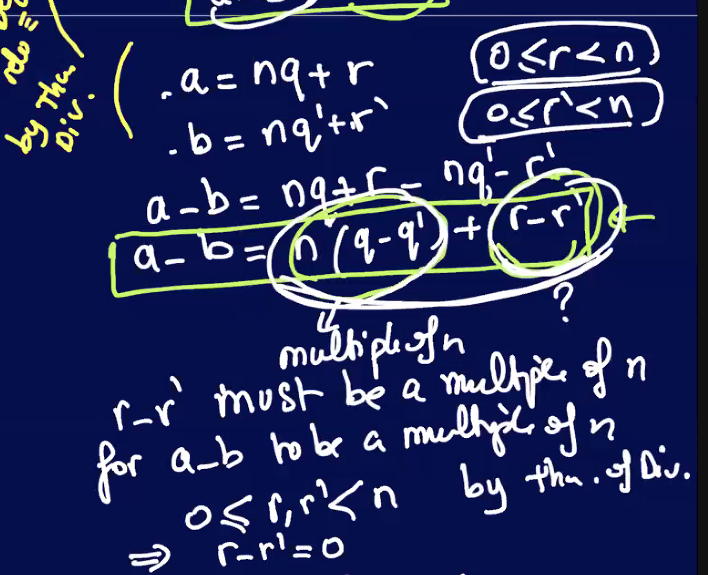 rde =
by thm
Div.
. a = nq + r
0 ≤ r < n
. b = nq' + r'
0 ≤ r' < n
a - b = nq + r - nq' - r'
a - b = n (q - q') + r - r'
?
multiple of n
r - r' must be a multiple of n
for a - b to be a multiple of n
by thm. of Div.
0 ≤ r, r' < n
⇒ r - r' = 0